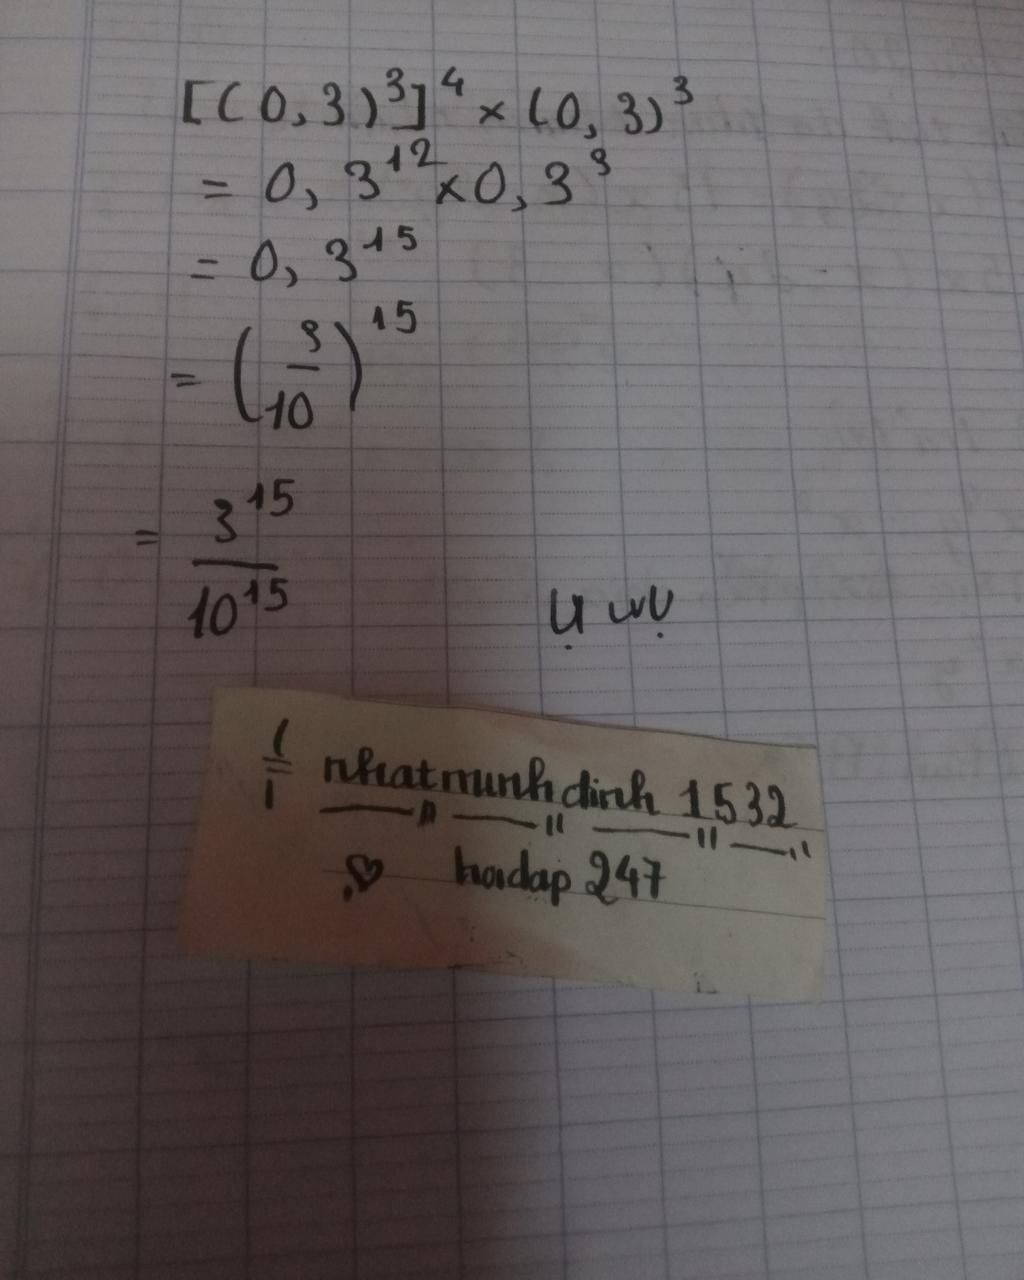 [(0,3)³]⁴ × (0,3)³
= 0,3¹² × 0,3³
= 0,3¹⁵
= (3/10)¹⁵
= 3¹⁵/10¹⁵
nhatminhdinh 1532
hoidap 247